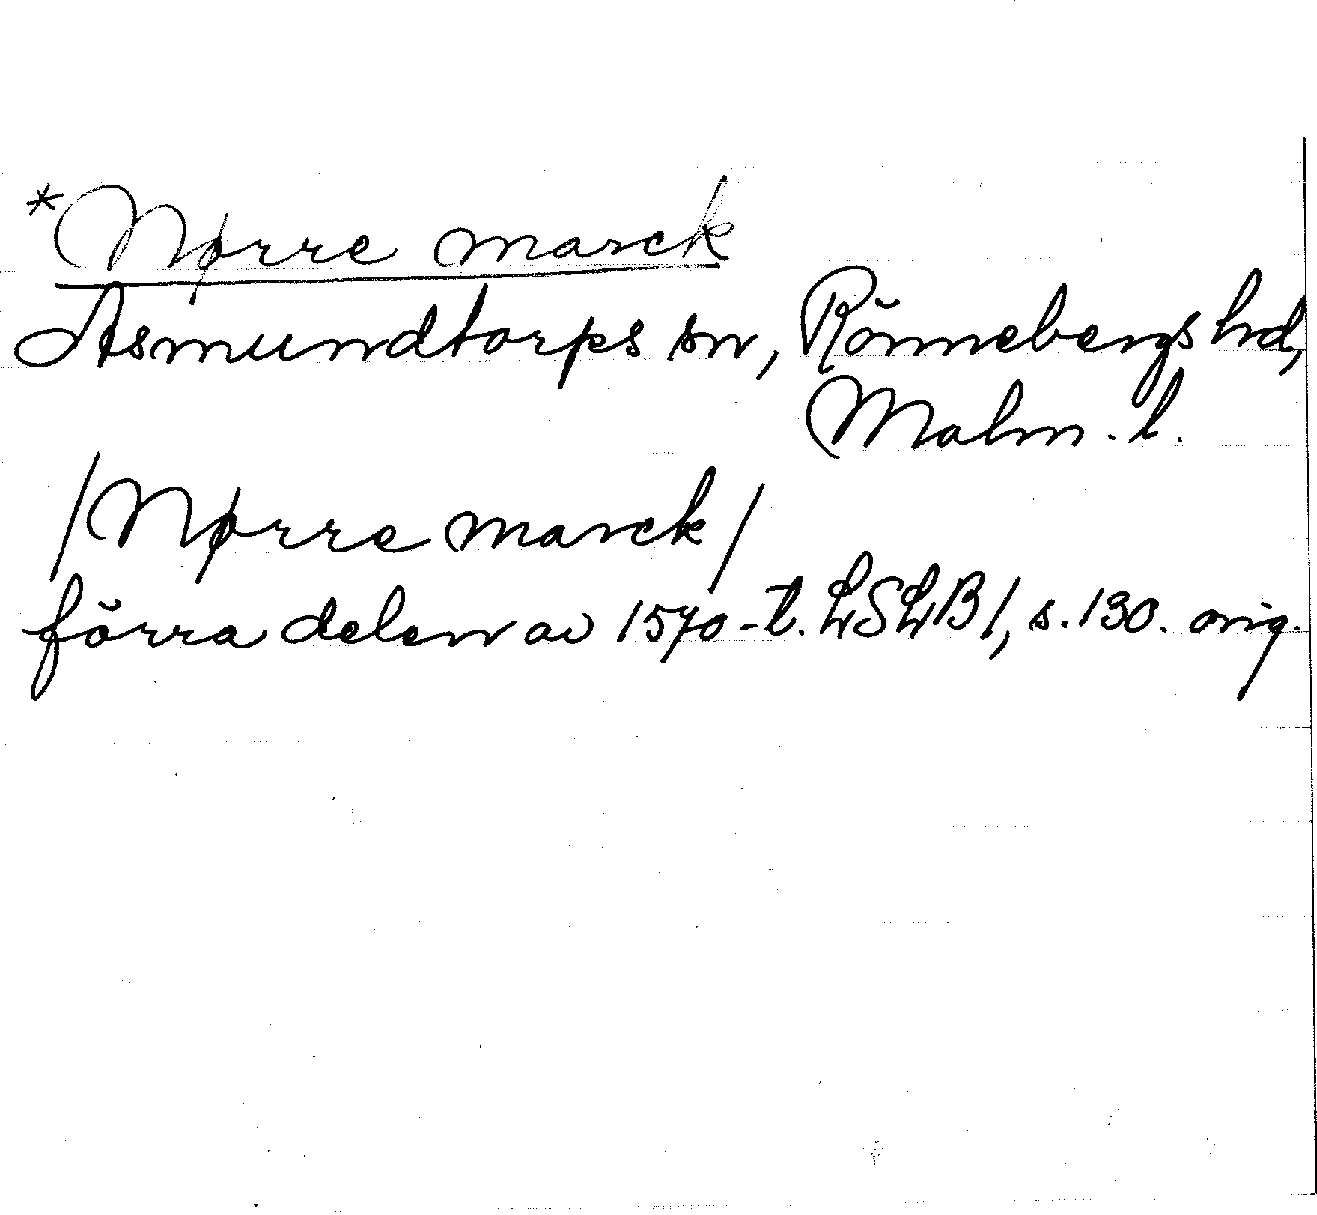 *Nørre marck
Asmundtorps sn, Rönnebergs hd,
Malm. l.
/Nørre marck/
förra delen av 1570-t. LSLB1, s. 130. orig.